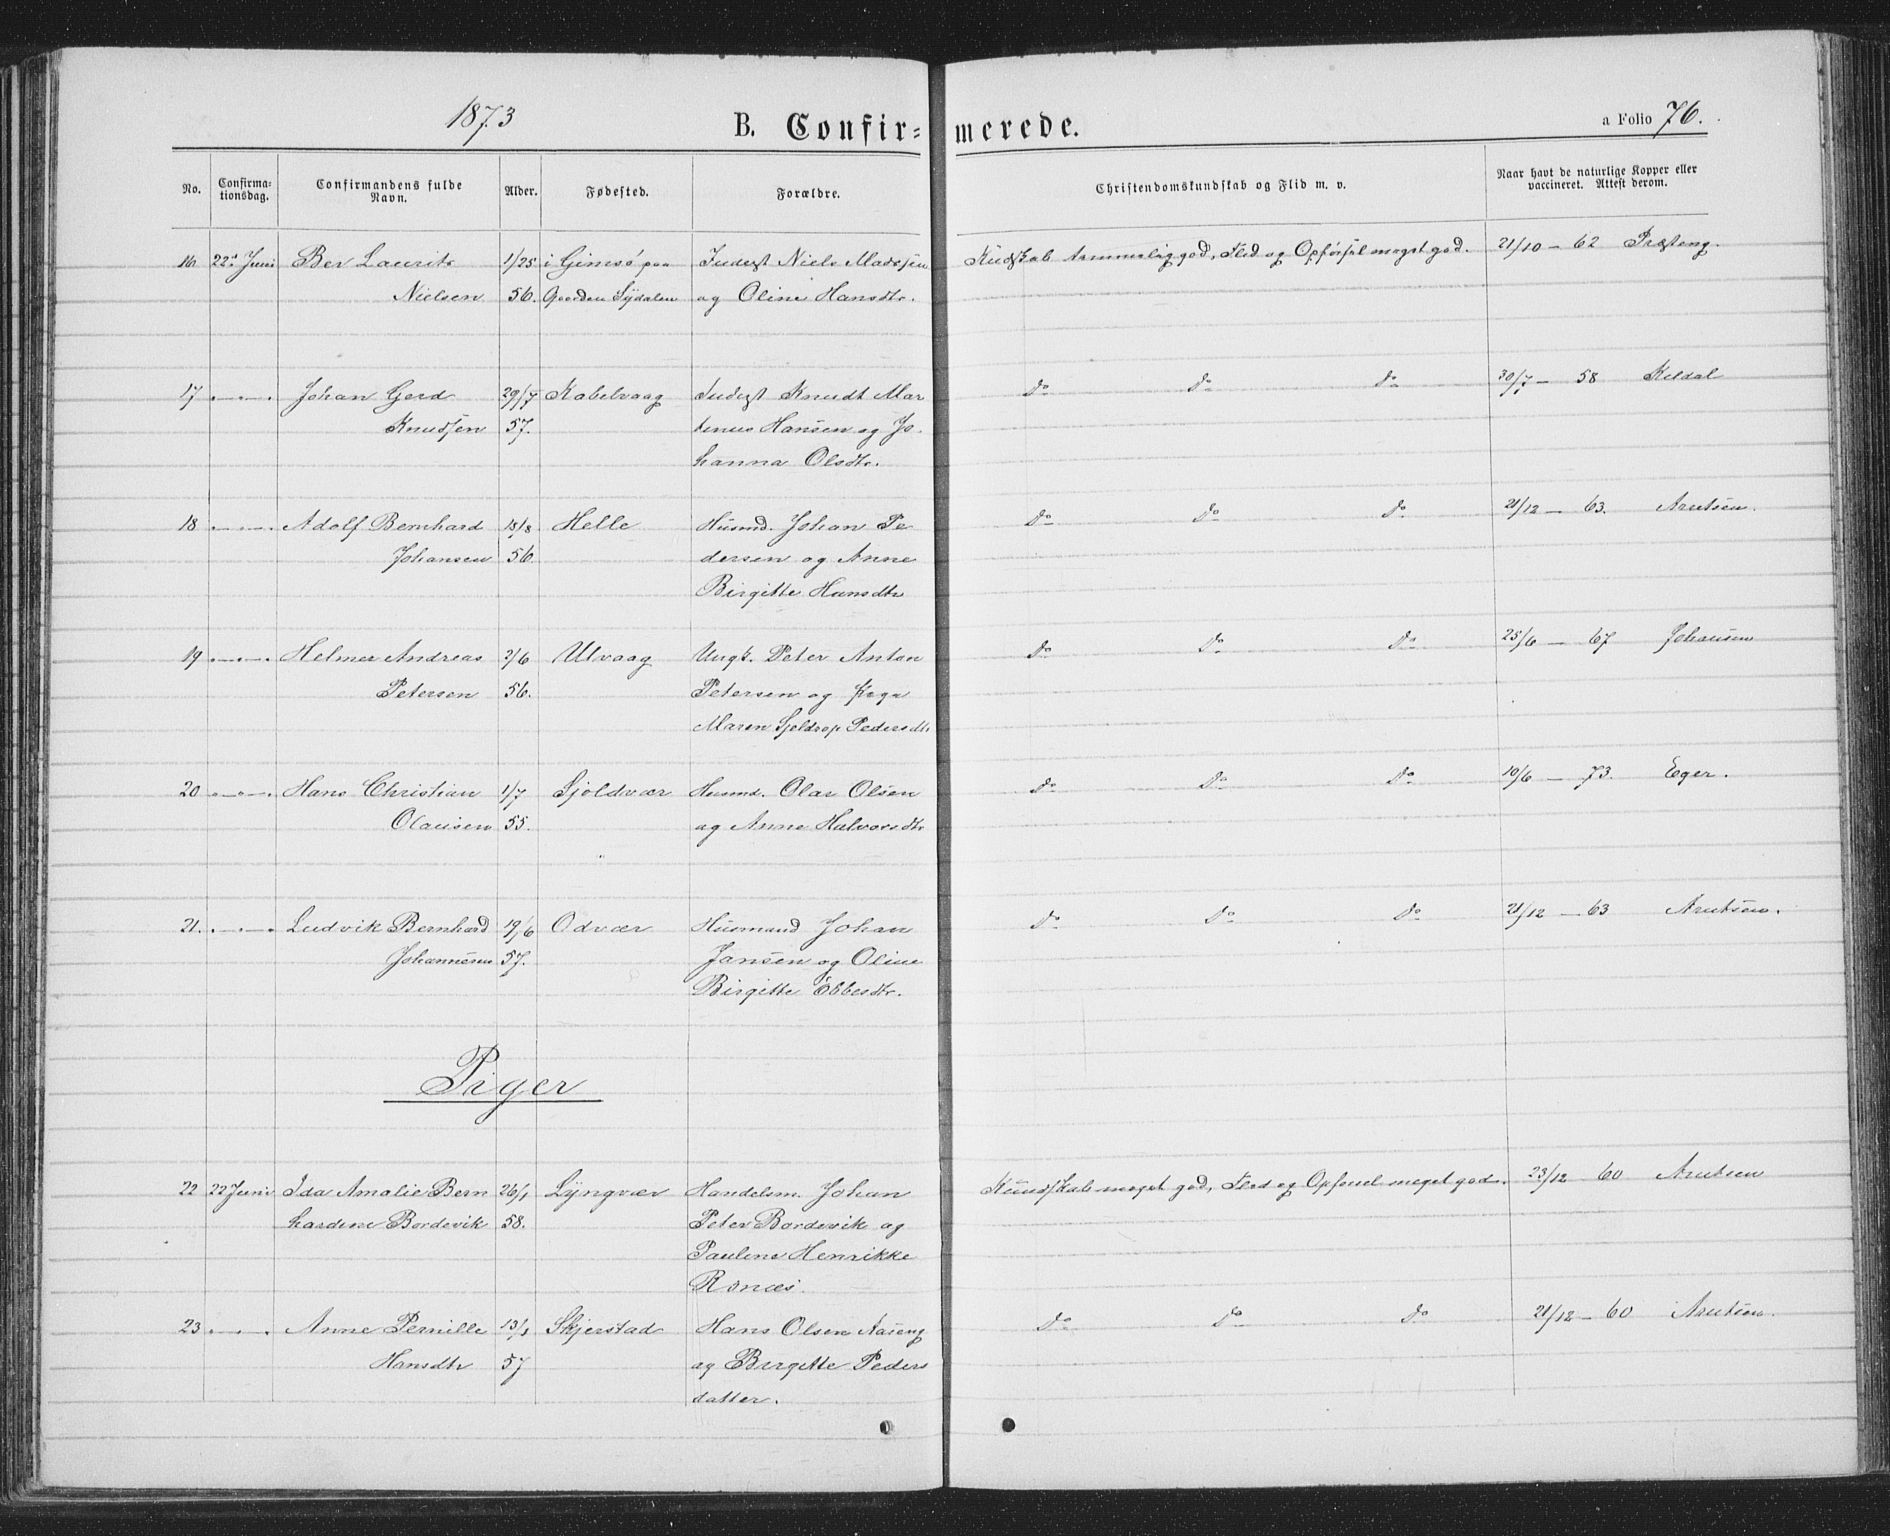 1873
B. Confir=
merede.
a Folio 76.
No.
Confirma=
tionsdag.
Confirmandens fulde
Navn.
Alder.
Fødested.
Forældre.
Christendomskundskab og Flid m. v.
Naar havt de naturlige Kopper eller
vaccineret. Attest derom.
16 22d Juni Ber Laurits 1/25 i Gimsö paa Inderst Niels Madssen Kudskab temmelig god, Flid og Opførsel meget god. 21/10 – 62 Præsteng.
Nielsen 56. Gaarden Sydalen og Oline Hansdtr.
17 Johan Gerd 29/7 Kabelvaag Inderst Knudt Mar do do do 30/7 – 58 Kildal
Knudsen 57. tinus Hansen og Jo
hanna Olsdtr.
18 Adolf Bernhard 18/8 Helle Husmd. Johan Pe do do do 21/12 – 63. Arntsen.
Johansen 56. dersen og Anne
Birgitte Hansdtr
19 Helmer Andreas 2/6 Ulvaag Ungk. Peter Anton do do do 25/6 – 67 Johansen
Petersen 56. Petersen og Piga
Maren Sjeldrop Pedersdtr
20 Hans Christian 1/7 Sjoldvær Husmd. Olav Olsen do do do 10/6 – 73. Eger.
Olausen 55. og Anne Halvorsdtr
21. Ludvik Bernhard 19/6 Odvær Husmand Johan do do do 21/12 – 63 Arntsen.
Johannesen 57. Jansen og Oline
Birgitte Ebbesdtr.
Piger
22 22 Juni Ida Amalie Bern 26/1 Lyngvær Handelsm. Johan Kundskab meget god, Flid og Opførsel meget god. 23/12 – 60 Arntsen
hardine Bordevik 58. Peter Bordevik og
Pauline Henrikke
Rønæs.
23 Anne Pernille 13/1 Skjerstad Hans Olsen Aaseng do do do 21/12 – 60 Arntsen.
Hansdtr 57 og Birgitte Peders
datter.